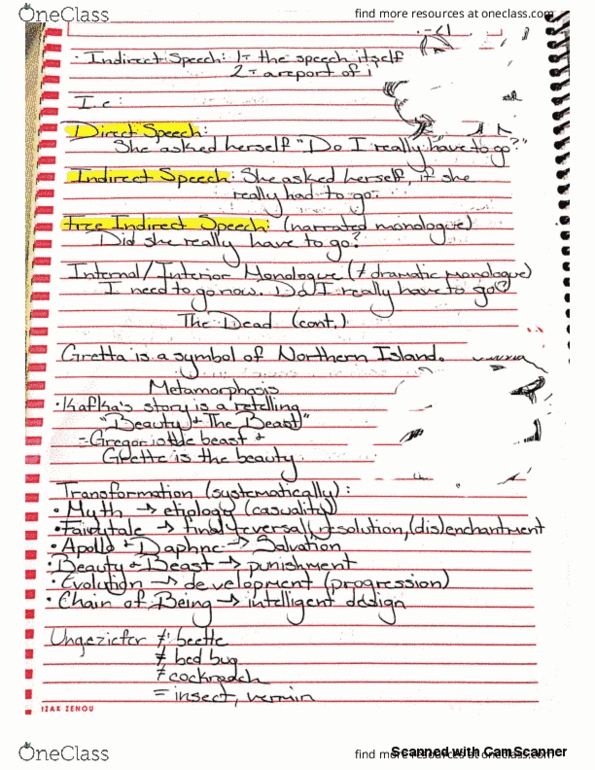 OneClass
find more resources at oneclass.com
· Indirect Speech: 1- the speech itself
2- a report of i
I.e:
Direct Speech:
She asked herself "Do I really have to go?"
Indirect Speech: She asked herself, if she
really had to go.
Free Indirect Speech: (narrated monologue)
Did she really have to go?
Internal/Interior Monologue (≠ dramatic monologue)
I need to go now. Do I really have to go?
The Dead (cont.)
Gretta is a symbol of Northern Island.
Metamorphosis
· Kafka's story is a retelling
"Beauty + The Beast"
- Gregor is the beast +
Grette is the beauty
Transformation (systematically):
· Myth → etiology (casuality)
· Fairytale → final reversal/resolution, (dis)enchantment
· Apollo + Daphne → Salvation
· Beauty + Beast → punishment
· Evolution → development (progression)
· Chain of Being → intelligent design
Ungeziefer ≠ beetle
≠ bed bug
≠ cockroach
= insect, vermin
IZAK ZENOU
OneClass
find more resources at oneclass.com
Scanned with CamScanner